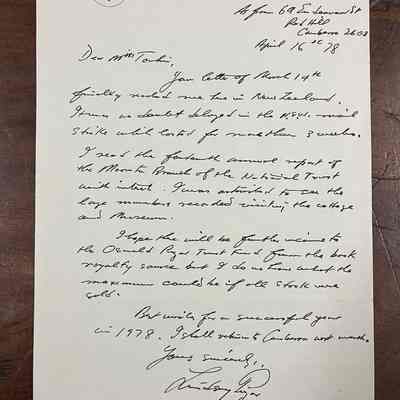 As from 69 Endeavour St
Red Hill
Canberra 2603
April 16th 78
Dear Mrs
Your letter of March 14th
finally reached me here in New Zealand.
It was no doubt delayed in the mail
strike which lasted for more than 3 weeks.
I read the annual report of
the Moonta Branch of the National Trust
with interest. I was astonished to see the
large numbers recorded visiting the cottage
and Museum.
I hope there will be further income to
the Oswald Pryor Trust Fund from the book
royalty source but I do not know what the
maximum could be if all stock were
sold.
Best wishes for a successful year
in 1978. I shall return to Canberra next month.
Yours sincerely,
Lindsay Pryor